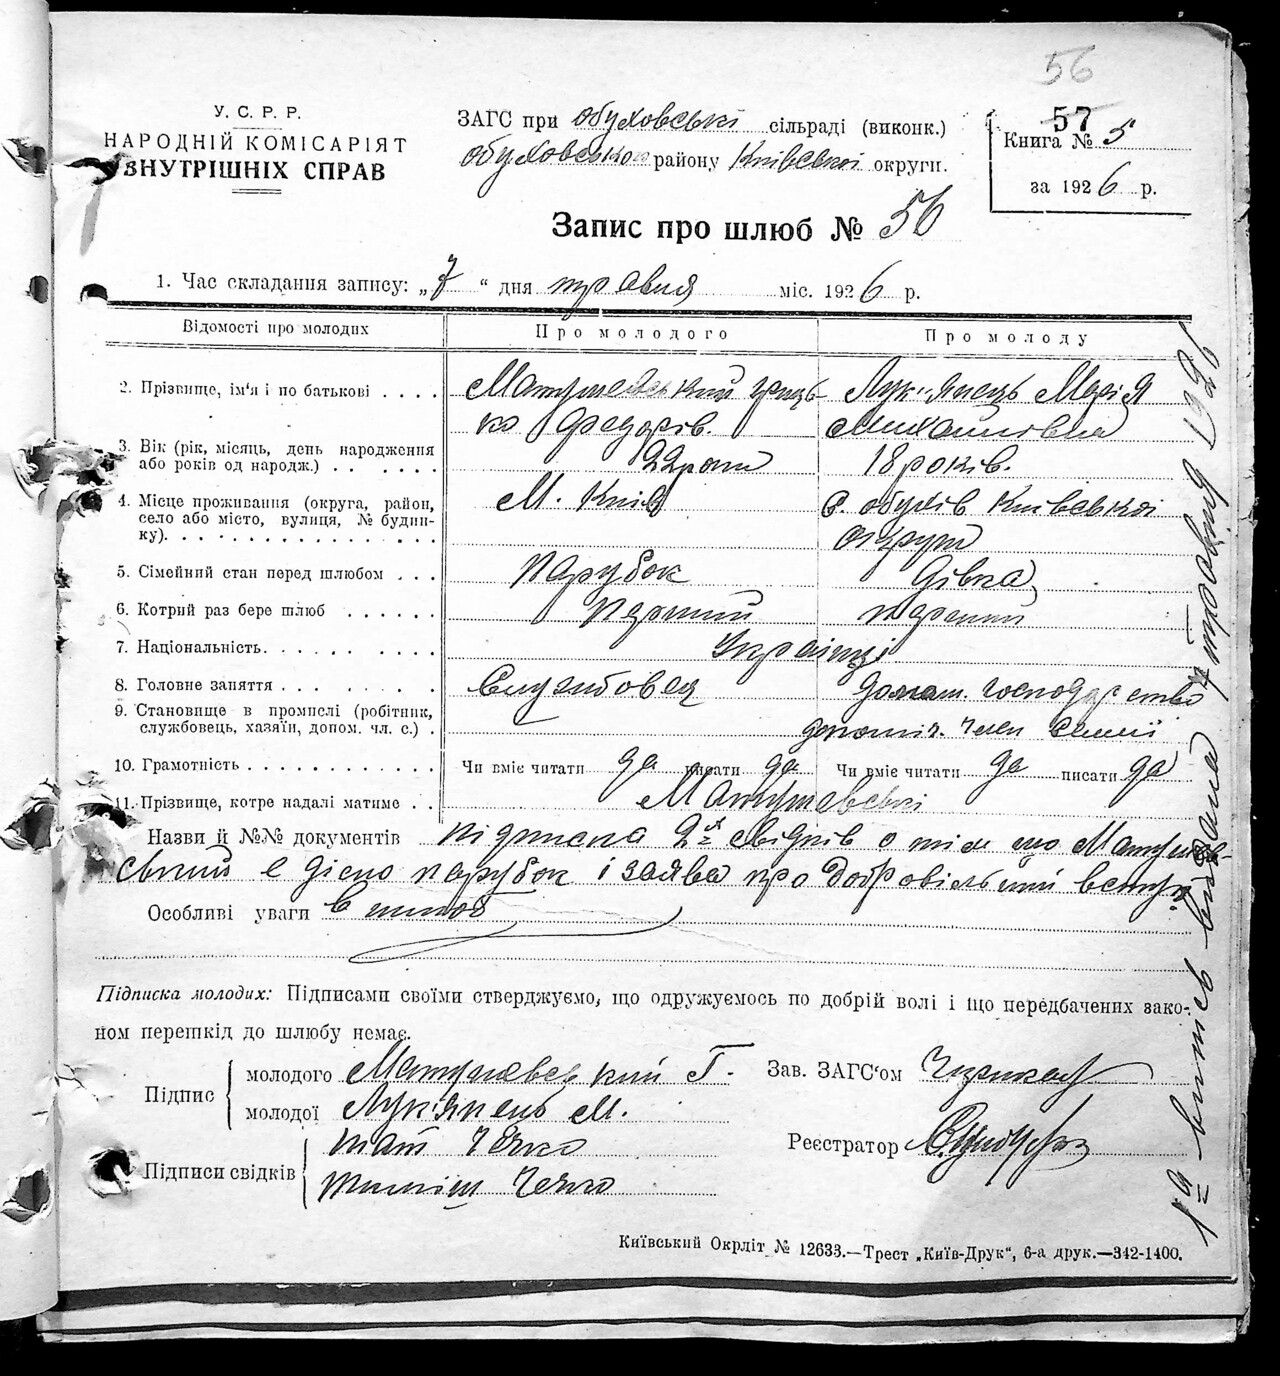 56
57
У. С. Р. Р.
НАРОДНІЙ КОМІСАРІЯТ
ВНУТРІШНІХ СПРАВ
ЗАГС при обуховські сільраді (виконк.)
обуховського району Київської округи.
Книга № 5
за 1926 р.
Запис про шлюб № 56
1. Час складання запису: „7" дня травня міс. 1926 р.
Відомості про молодих
Про молодого
Про молоду
2. Прізвище, ім'я і по батькові . . . .
Матушевський Гриць-
ко Федорів.
Лук'янець Марія
Михайлівна
3. Вік (рік, місяць, день народження
або років од народж.) . . . . . .
22 роки
18 років.
4. Місце проживання (округа, район,
село або місто, вулиця, № будин-
ку). . . . . . . . . . . . . . .
М. Київ
с. обухів Київської
округи
5. Сімейний стан перед шлюбом . . .
парубок
дівка
6. Котрий раз бере шлюб . . . . . .
перший
перший
7. Національність. . . . . . . . . .
Українці
8. Головне заняття . . . . . . . . .
Службовец
домаш. господарство
9. Становище в промислі (робітник,
службовець, хазяїн, допом. чл. с.) .
допоміч. член семії
10. Грамотність . . . . . . . . . . .
Чи вміє читати да писати да
Чи вміє читати да писати да
11. Прізвище, котре надалі матиме . .
Матушевські
Назви й №№ документів підписка 2х свідків о тім що Матуше-
вський е дісно парубок і заява про добровільний вступ
Особливі уваги в шлюб
Підписка молодих: Підписами своїми стверджуємо, що одружуємось по добрій волі і що передбачених зако-
ном перешкід до шлюбу немає.
Підпис
молодого Матушевський Г.
молодої Лук'янець М.
Зав. ЗАГС'ом
Реєстратор
Підписи свідків
Тимиш
1а випись видана 7 травня 1926
Київський Окрліт № 12633.—Трест „Київ-Друк", 6-а друк.—342-1400.